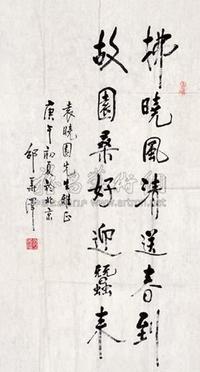 拂曉風沸送春到
故園桑好迎蠶来
袁曉園先生雅正
庚午初夏於北京